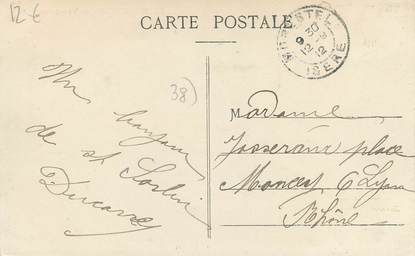 12.€
CARTE POSTALE
MORESTEL
9 30
12 - 9
12
ISERE
38)
Un bonjour
de st Sorlin
Ducarre
Madame
Josserand place
Moncey 6 Lyon
Rhône